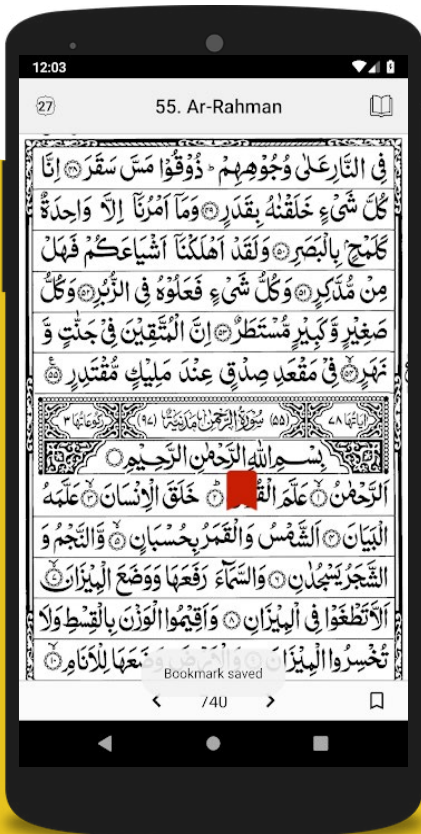 12:03
27
55. Ar-Rahman
فِی النَّارِ عَلٰی وُجُوْهِهِمْ ؕ ذُوْقُوْا مَسَّ سَقَرَ ۝۴۸ اِنَّا
كُلَّ شَیْءٍ خَلَقْنٰهُ بِقَدَرٍ ۝۴۹ وَمَاۤ اَمْرُنَاۤ اِلَّا وَاحِدَةٌ
كَلَمْحٍۭ بِالْبَصَرِ ۝۵۰ وَلَقَدْ اَهْلَكْنَاۤ اَشْیَاعَكُمْ فَهَلْ
مِنْ مُّدَّكِرٍ ۝۵۱ وَكُلُّ شَیْءٍ فَعَلُوْهُ فِی الزُّبُرِ ۝۵۲ وَكُلُّ
صَغِیْرٍ وَّكَبِیْرٍ مُّسْتَطَرٌ ۝۵۳ اِنَّ الْمُتَّقِیْنَ فِیْ جَنّٰتٍ وَّ
نَهَرٍ ۝۵۴ فِیْ مَقْعَدِ صِدْقٍ عِنْدَ مَلِیْكٍ مُّقْتَدِرٍ ۝۵۵
اٰیَاتُهَا ۷۸ (۵۵) سُوْرَةُ الرَّحْمٰنِ مَدَنِیَّةٌ (۹۷) رُكُوْعَاتُهَا ۳
بِسْمِ اللّٰهِ الرَّحْمٰنِ الرَّحِیْمِ
اَلرَّحْمٰنُ ۝۱ عَلَّمَ ۝۲ خَلَقَ الْاِنْسَانَ ۝۳ عَلَّمَهُ
الْبَیَانَ ۝۴ اَلشَّمْسُ وَالْقَمَرُ بِحُسْبَانٍ ۝۵ وَّالنَّجْمُ وَ
الشَّجَرُ یَسْجُدٰنِ ۝۶ وَالسَّمَآءَ رَفَعَهَا وَوَضَعَ الْمِیْزَانَ ۝۷
اَلَّا تَطْغَوْا فِی الْمِیْزَانِ ۝۸ وَاَقِیْمُوا الْوَزْنَ بِالْقِسْطِ وَلَا
تُخْسِرُوا الْمِیْزَانَ وَضَعَهَا لِلْاَنَامِ ۝۱۰
Bookmark saved